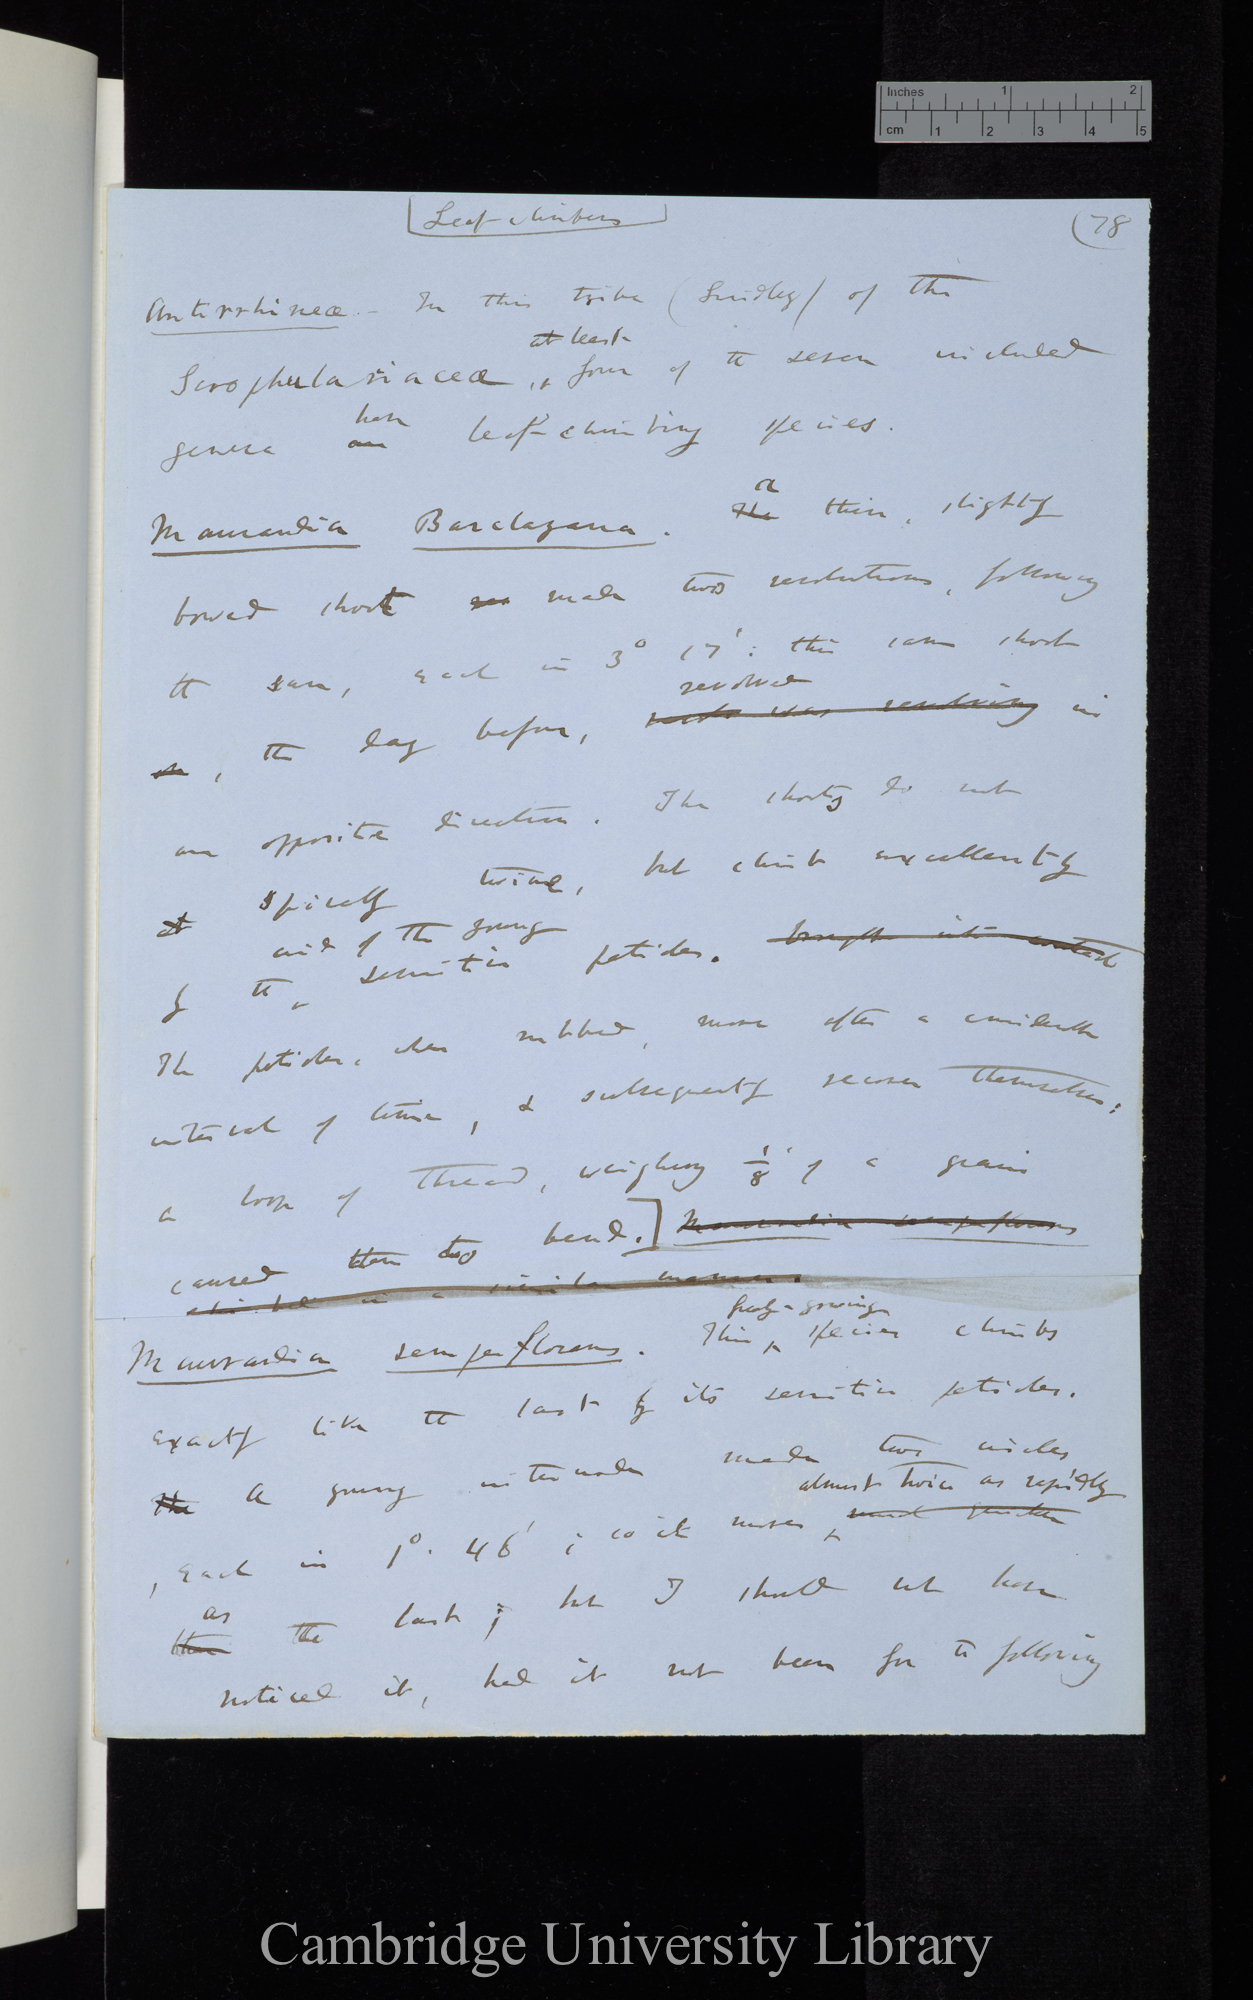 Inches 1 2
cm 1 2 3 4 5
Leaf-climbers
(78
Antirrhineæ. — In this tribe (Lindley) of the
at least
Scrophulariaceæ, ^ four of the seven included
have
genera are leaf-climbing species.
a
Maurandia Barclayana. The thin, slightly
bowed shoot made two revolutions, following
the sun, each in 3° 17': this same shoot
revolved
, the day before, was revolving in
an opposite direction. The shoots do not
spirally twine, but climb excellently
aid of the young
by the ^ sensitive petioles. brought into contact
The petioles, when rubbed, move after a considerable
interval of time, & subsequently recover themselves;
a loop of thread, weighing 1/8 of a grain
caused them to bend.] Maurandia semperflorens
climbed in a similar manner.
freely-growing
Maurandia semperflorens. This ^ species climbs
exactly like the last by its sensitive petioles.
The A young internode made two circles
almost twice as rapidly
, each in 1°. 46'; so it moves ^ much quicker
as
than the last; but I should not have
noticed it, had it not been for the following
Cambridge University Library